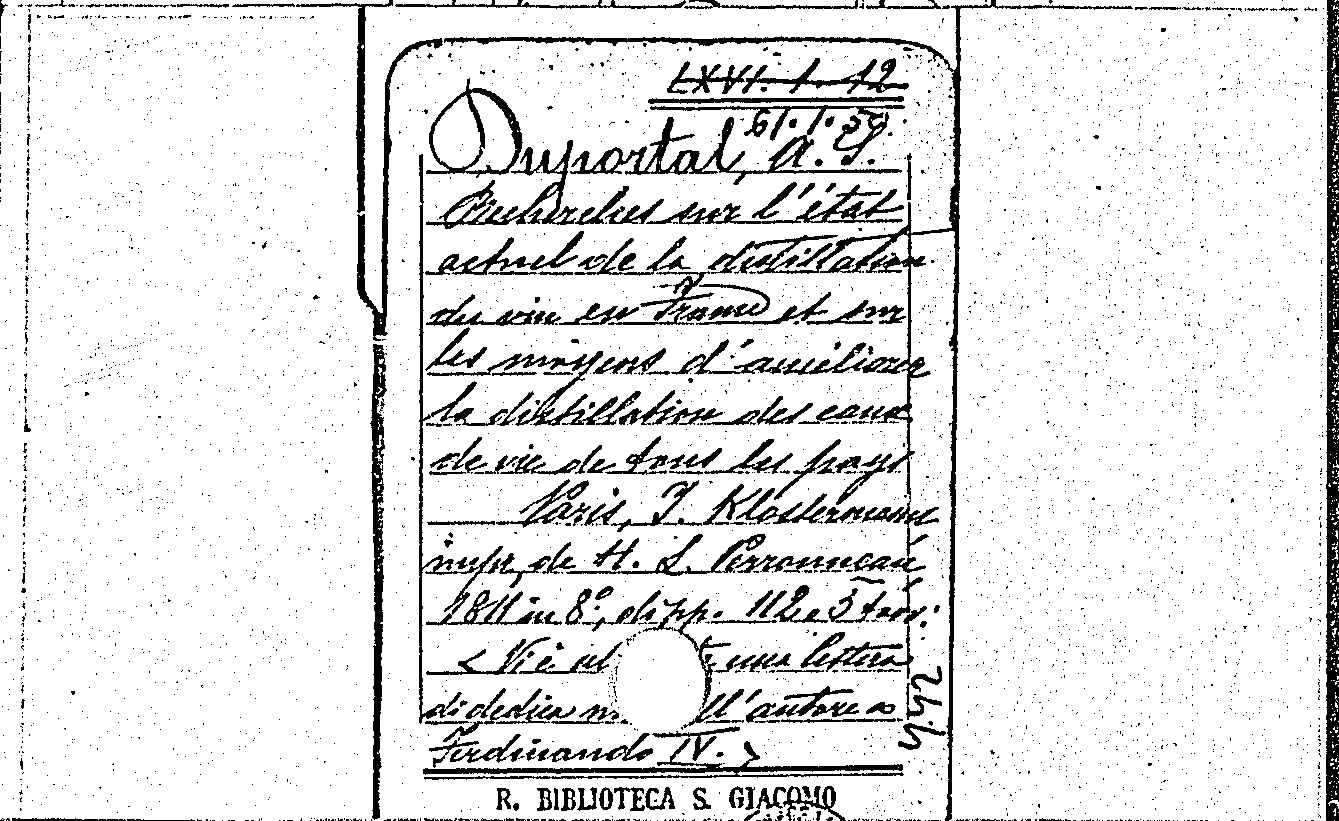 LXVI. 1. 12
61. 1. 50.
Duportal, A. S.
Recherches sur l'état
actuel de la distillation
du vin en France et sur
les moyens d'améliorer
la distillation des eaux
de vie de tous les pays
Paris, J. Klostermann
impr. de H. L. Perronneau
1811 in 8°, di pp. 112 e 3 tav.
< Vi è una lettera
di dedica ll'autore a
Ferdinando IV. >
R. BIBLIOTECA S. GIACOMO